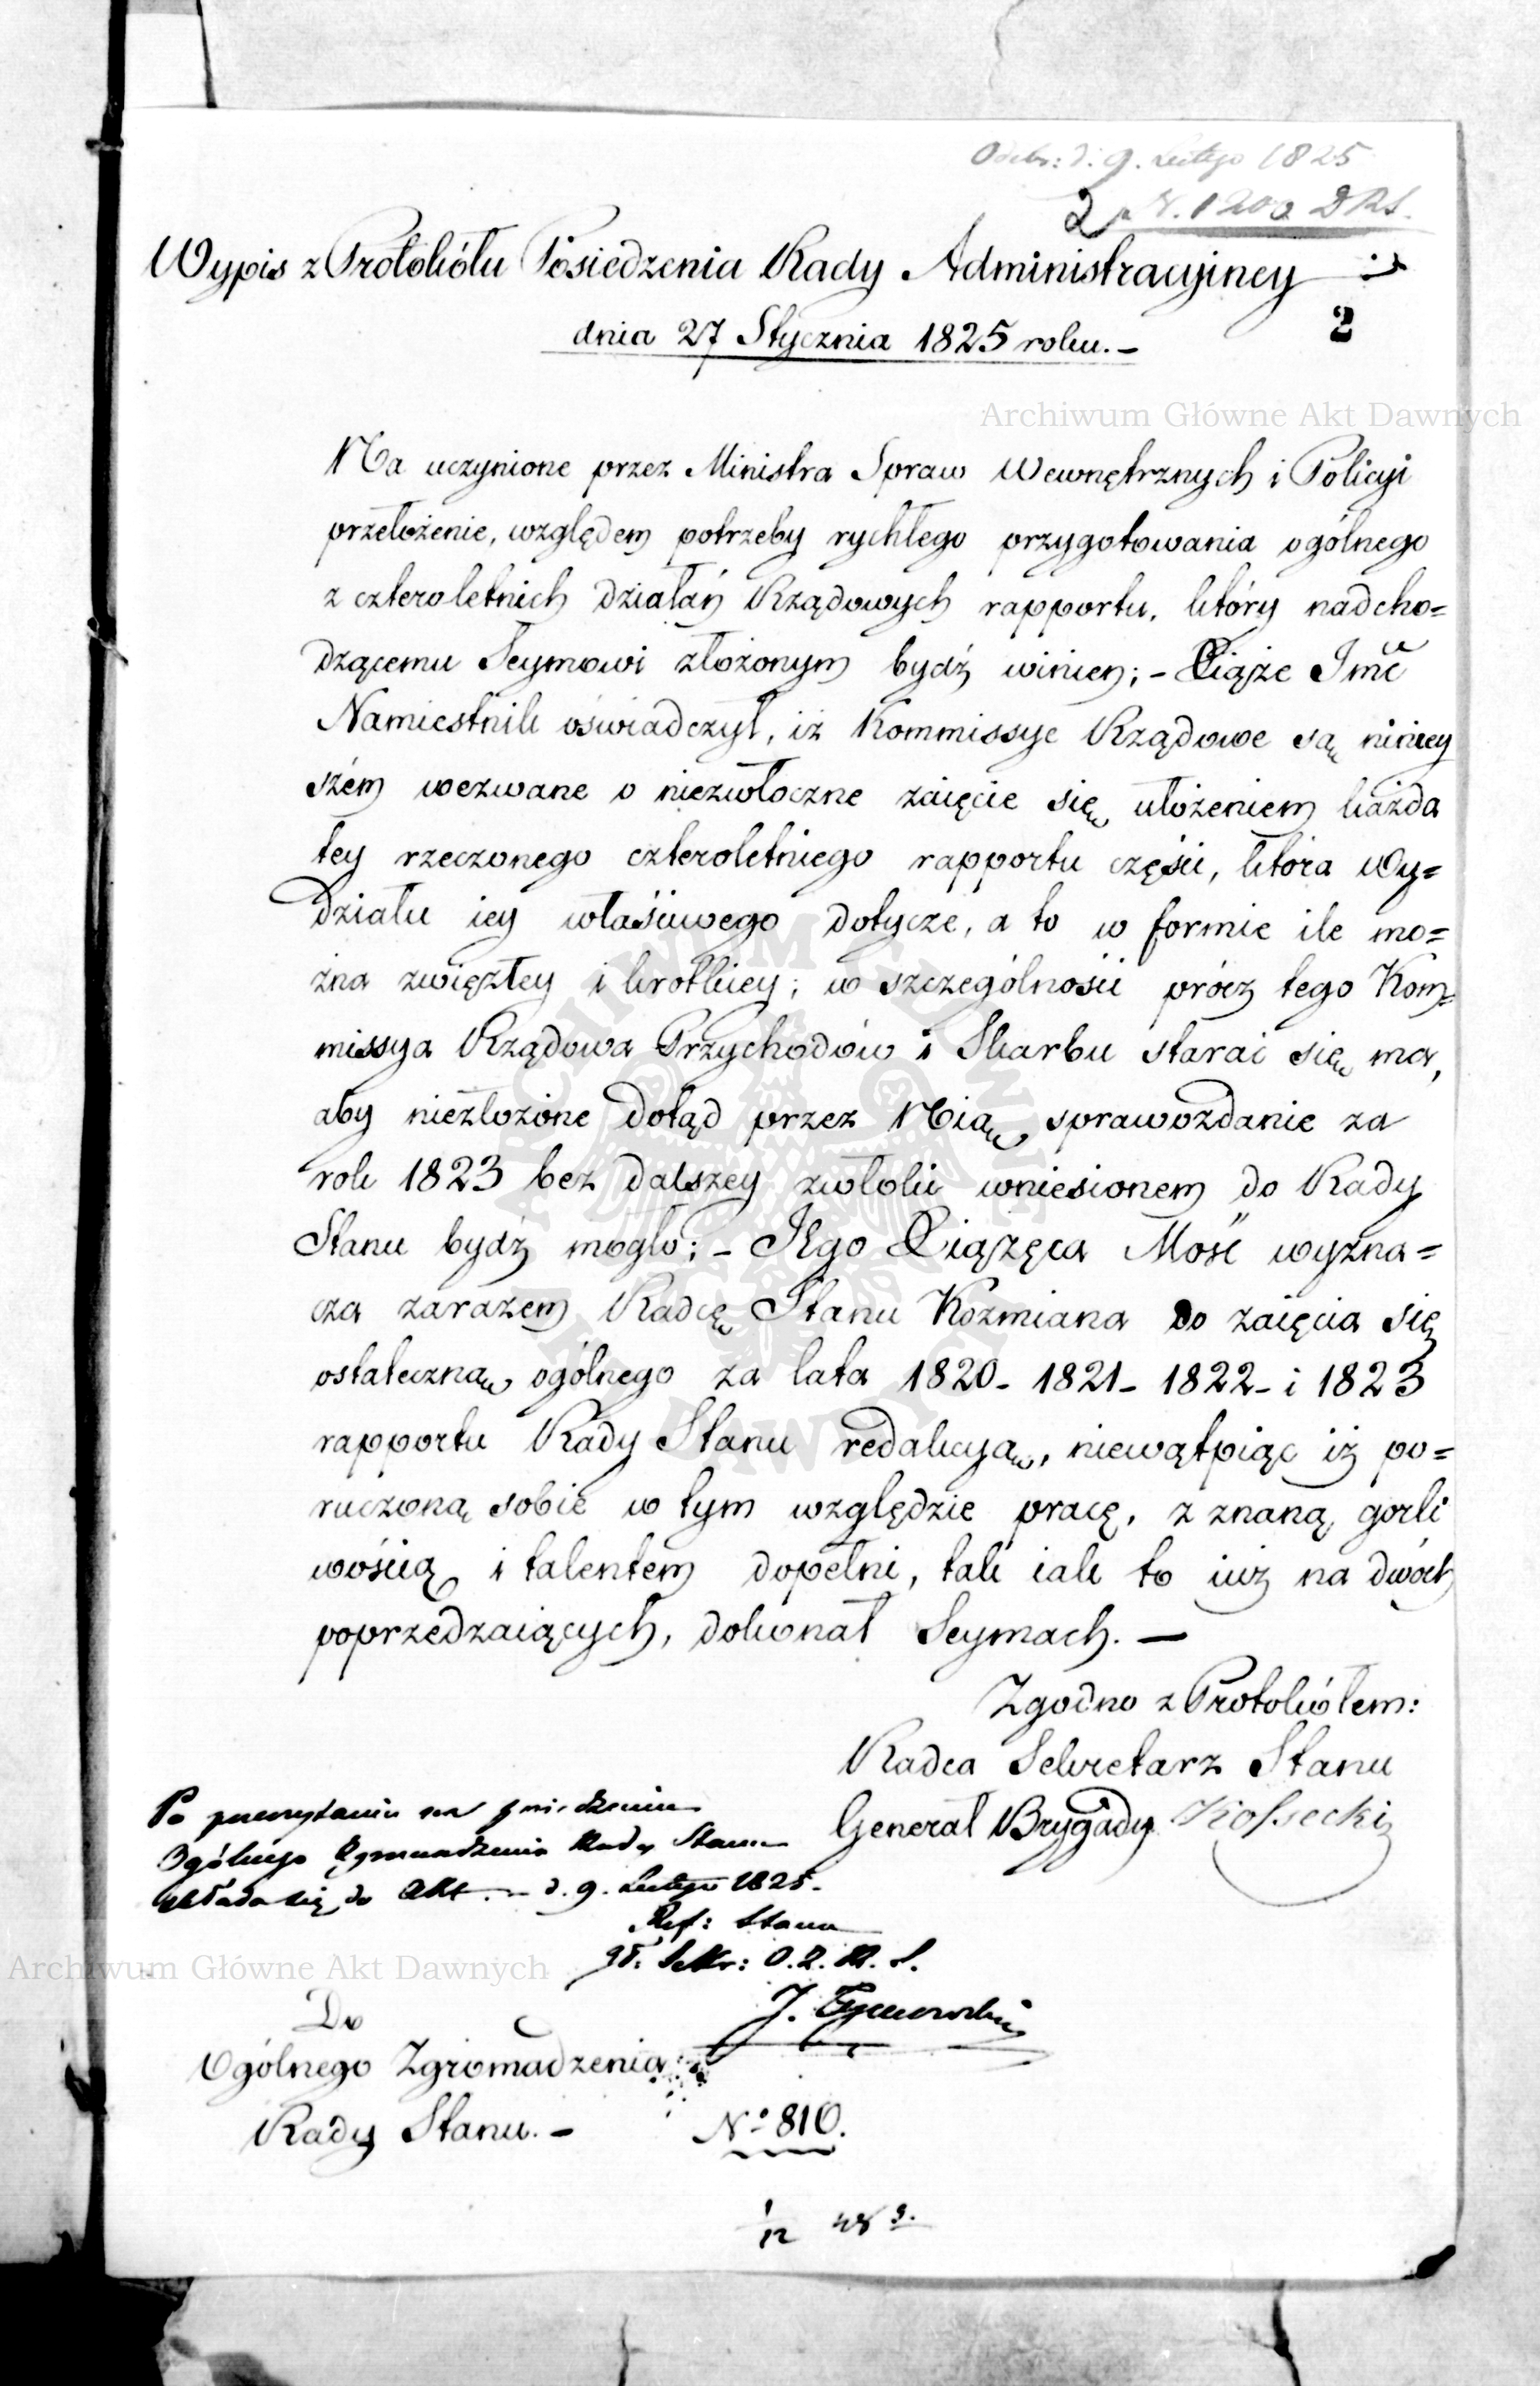 Odebr: d. 9. Lutego 1825
2 N. 1200 DRS.
Wypis z Protokółu Posiedzenia Rady Administracyiney
dnia 27 Stycznia 1825 roku. –
2
Archiwum Główne Akt Dawnych
Na uczynione przez Ministra Spraw Wewnętrznych i Policyi
przełożenie, względem potrzeby rychłego przygotowania ogólnego
z czteroletnich działań Rządowych rapportu, który nadcho=
dzącemu Seymowi złożonym bydź winien; – Xiąże Jmć
Namiestnik oświadczył, iż Kommissye Rządowe są niniey
szém wezwane o niezwłoczne zaięcie się ułożeniem każda
tey rzeczonego czteroletniego rapportu części, która Wy=
działu iey właściwego dotycze, a to w formie ile mo=
żna zwięzłey i krotkiey; w szczególności prócz tego Kom=
missya Rządowa Przychodów i Skarbu starać się ma,
aby niezłożone dotąd przez Nią sprawozdanie za
rok 1823 bez dalszey zwłoki wniesionem do Rady
Stanu bydź mogło; – JEgo Xiążęca Mość wyzna=
cza zarazem Radcę Stanu Kozmiana do zaięcia się
ostateczną ogólnego za lata 1820 – 1821 – 1822 – i 1823
rapportu Rady Stanu redakcyą, niewątpiąc iż po=
ruczoną sobie w tym względzie pracę, z znaną gorli
wością i talentem dopełni, tak iak to iuż na dwóch
poprzedzaiących, dokonał Seymach. —
Zgodno z Protokółem:
Radca Sekretarz Stanu
Generał Brygady Kossecki
Po przeczytaniu na posiedzeniu
Ogólnego Zgromadzenia Rady Stanu
składa się do Akt. – d. 9. Lutego 1825.
Ref: Stanu
Sekr: O. Z. R. S.
J. Tymowski
Archiwum Główne Akt Dawnych
Do
Ogólnego Zgromadzenia
Rady Stanu. –
No 810.